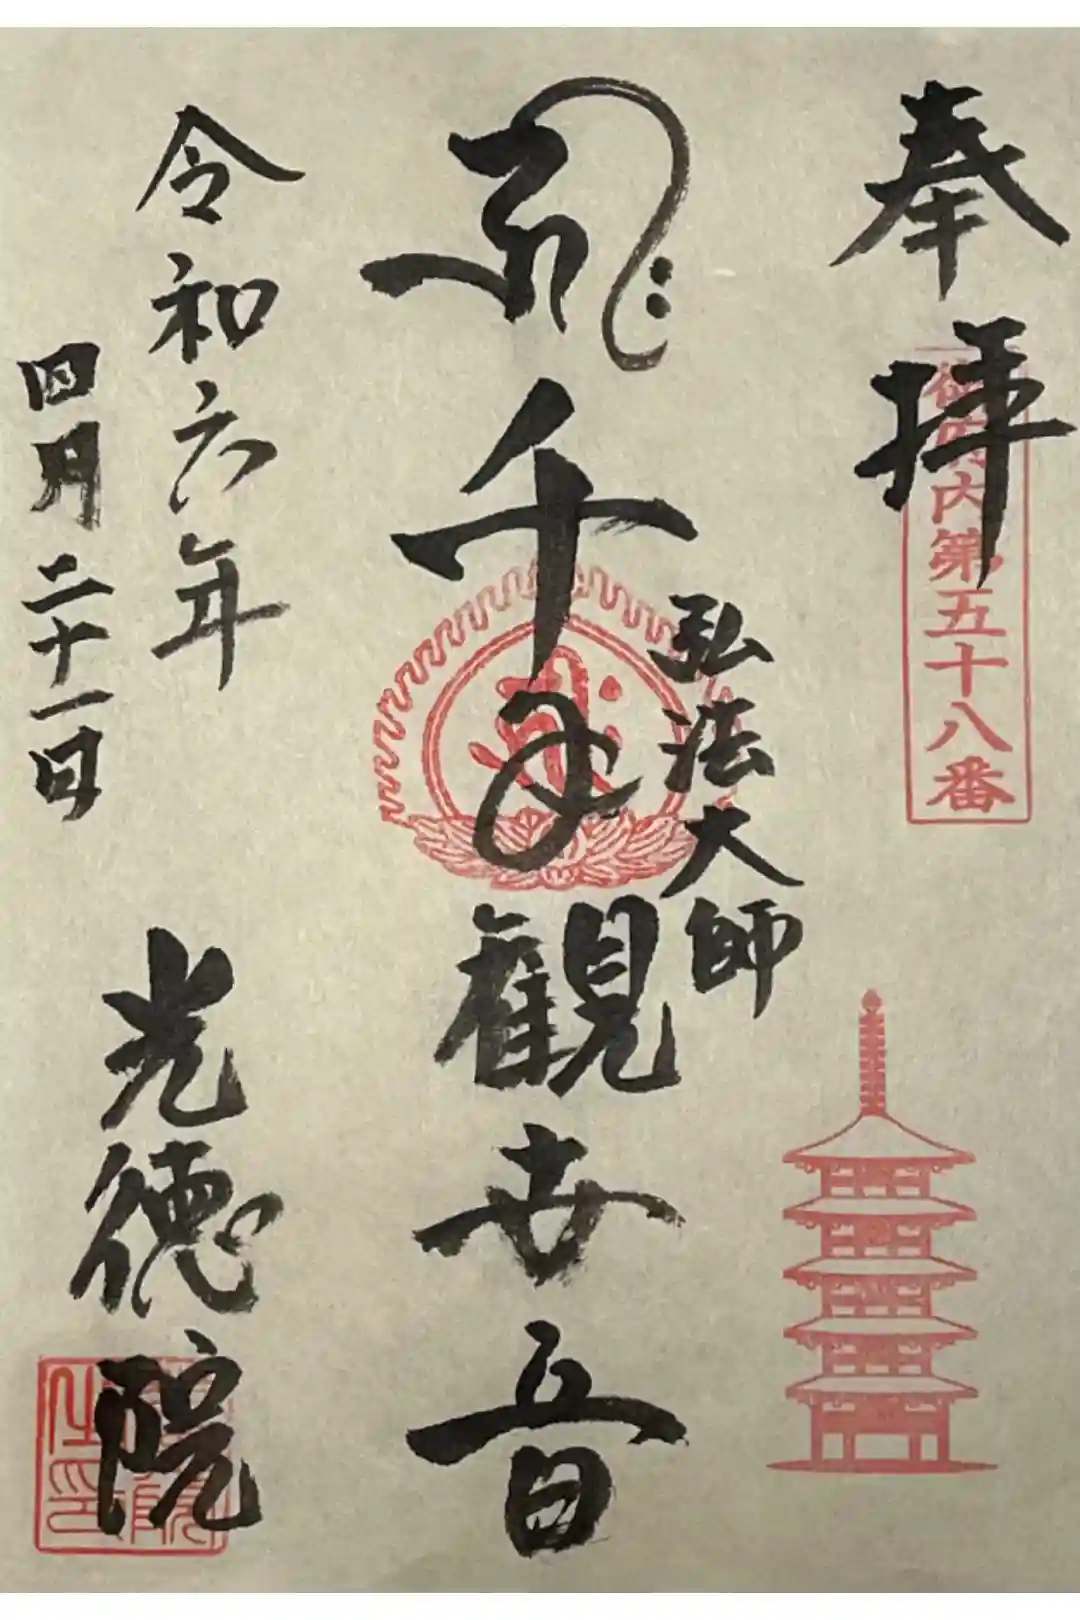 奉拝
御府内第五十八番
弘法大師
千手観世音
令和六年
四月二十一日
光徳院